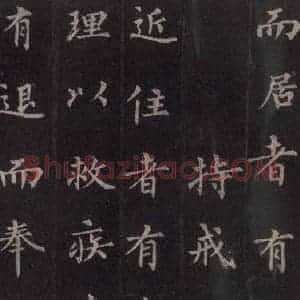 而居者有
持戒
近住者有
理以救疾
有退而奉
Shufaziliao.com